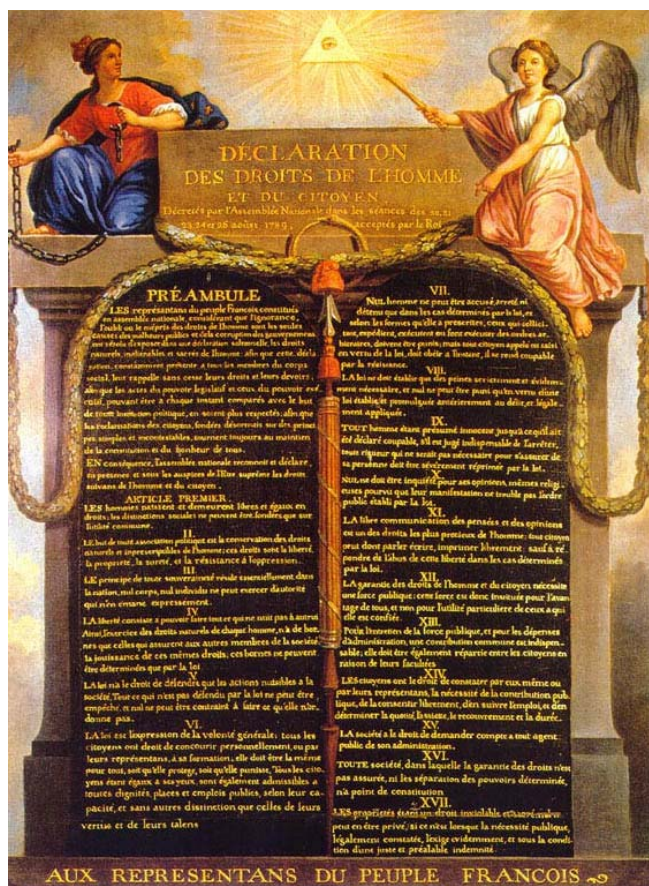 DÉCLARATION
DES DROITS DE L'HOMME
ET DU CITOYEN,
Décretés par l'Assemblée Nationale dans les séances des 20, 21
23, 24 et 26 août 1789, acceptés par le Roi
PRÉAMBULE
LES représentans du peuple François, constitués
en assemblée nationale, considérant que l'ignorance,
l'oubli ou le mépris des droits de l'homme sont les seules
causes des malheurs publics et de la corruption des gouvernemens
ont résolu d'exposer dans une déclaration solemnelle, les droits
naturels, inaliénables et sacrés de l'homme; afin que cette décla
ration, constamment présente a tous les membres du corps
social, leur rappelle sans cesse leurs droits et leurs devoirs;
afin que les actes du pouvoir législatif et ceux du pouvoir exé
cutif, pouvant être à chaque instant comparés avec le but
de toute institution politique, en soient plus respectés; afin que
les réclamations des citoyens, fondées désormais sur des princi
pes simples et incontestables, tournent toujours au maintien
de la constitution et du bonheur de tous.
EN conséquence, l'assemblée nationale reconnoit et déclare,
en presence et sous les auspices de l'Etre suprême les droits
suivans de l'homme et du citoyen.
ARTICLE PREMIER.
LES hommes naissent et demeurent libres et égaux en
droits; les distinctions sociales ne peuvent être fondées que sur
l'utilité commune.
II.
LE but de toute association politique est la conservation des droits
naturels et imprescriptibles de l'homme; ces droits sont la liberté,
la propriété, la sureté, et la résistance à l'oppression.
III.
LE principe de toute souveraineté réside essentiellement dans
la nation, nul corps, nul individu ne peut exercer d'autorité
qui n'en émane expressément.
IV.
LA liberté consiste a pouvoir faire tout ce qui ne nuit pas à autrui
Ainsi, l'exercice des droits naturels de chaque homme, n'a de bor
nes que celles qui assurent aux autres membres de la société
la jouissance de ces mêmes droits; ces bornes ne peuvent
être déterminées que par la loi
V.
LA loi n'a le droit de défendre que les actions nuisibles a la
société. Tout ce qui n'est pas défendu par la loi ne peut être
empêché, et nul ne peut être contraint à faire ce qu'elle n'or
donne pas.
VI.
LA loi est l'expression de la volonté générale; tous les
citoyens ont droit de concourir personnellement, ou par
leurs représentans, à sa formation; elle doit être la même
pour tous, soit qu'elle protege, soit qu'elle punisse. Tous les cito
yens étant égaux à ses yeux, sont également admissibles a
toutes dignités, places et emplois publics, selon leur ca
pacité, et sans autres distinction que celles de leurs
vertus et de leurs talens
VII.
NUL homme ne peut être accusé, arreté, ni
détenu que dans les cas déterminés par la loi, et
selon les formes qu'elle a prescrites, ceux qui sollici
tent, expédient, exécutent ou font exécuter des ordres ar
bitraires, doivent être punis; mais tout citoyen appelé ou saisi
en vertu de la loi, doit obéir a l'instant, il se rend coupable
par la résistance.
VIII.
LA loi ne doit établir que des peines strictement et évidem-
ment nécessaire, et nul ne peut être puni qu'en vertu d'une
loi établie et promulguée antérieurement au délit, et légale
ment appliquée.
IX.
TOUT homme étant présumé innocent jusqu'a ce qu'il ait
été déclaré coupable, s'il est jugé indispensable de l'arrêter,
toute rigueur qui ne serait pas nécessaire pour s'assurer de
sa personne doit être sévèrement réprimée par la loi.
X.
NUL ne doit être inquiété pour ses opinions, mêmes religi
euses pourvu que leur manifestation ne trouble pas l'ordre
public établi par la loi.
XI.
LA libre communication des pensées et des opinions
est un des droits les plus precieux de l'homme; tout citoyen
peut donc parler écrire, imprimer librement: sauf à ré
pondre de l'abus de cette liberté dans les cas déterminés
par la loi.
XII.
LA garantie des droits de l'homme et du citoyen nécessite
une force publique; cette force est donc instituée pour l'avan
tage de tous, et non pour l'utilité particuliere de ceux a qui
elle est confiée.
XIII.
Pour l'entretien de la force publique, et pour les dépenses
d'administration, une contribution commune est indispen-
sable; elle doit être également répartie entre les citoyens en
raison de leurs facultées
XIV.
LES citoyens ont le droit de constater par eux même ou
par leurs représentans, la nécessité de la contribution pub
lique, de la consentir librement, d'en suivre l'emploi, et d'en
déterminer la quotité, l'assiette, le recouvrement et la durée.
XV.
LA société a le droit de demander compte a tout agent
public de son administration.
XVI.
TOUTE société, dans laquelle la garantie des droits n'est
pas assurée, ni la séparation des pouvoirs déterminée,
n'a point de constitution
XVII.
LES propriétés étant un droit inviolable et sacré, nul ne
peut en être privé, si ce n'est lorsque la nécessité publique,
légalement constatée, l'exige evidemment, et sous la condi
tion d'une juste et préalable indemnité.
AUX REPRESENTANS DU PEUPLE FRANCOIS